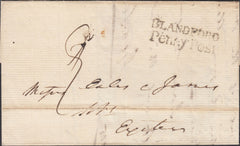 BLANDFORD
Penny Post
Messrs Coles & James
Exeter